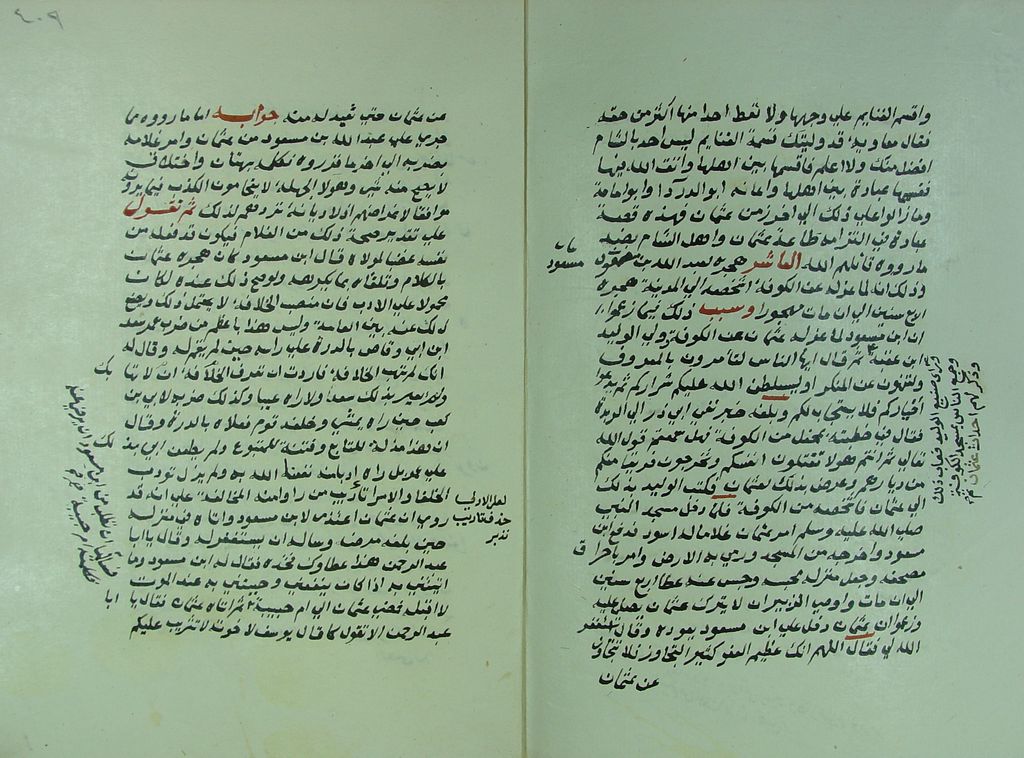 واقسم الغنايم علي وجهها ولا تعط احدا منها اكثر من حقه
فقال معاوية قد وليتك قسمة الغنايم ليس احد بالشام
افضل منك ولا اعلم فاقسمها بين اهلها واتق الله فيها
فقسمها عبادة بين اهلها واعانه ابو الدردا وابو امامة
وما زالوا علي ذلك الي اخر زمن عثمان فهذه قصة
عبادة في التزامه طاعة عثمان واهل الشام بضد
ما رووه قاتلهم الله العاشر هجره لعبد الله بن مسعود
وذلك انه لما عزله عن الكوفة اشخصه الي المدينة هجره
اربع سنين الي ان مات مهجورا وسبب ذلك فيما زعموا
ان ابن مسعود لما عزله عثمان عن الكوفة وولي الوليد
ابن عقبة ثم قال ايها الناس لتامرون بالمعروف
ولتنهون عن المنكر او ليسلطن الله عليكم شراركم ثم يدعوا
اخياركم فلا يستجاب لكم وبلغه خبر نفي ابي ذر الي الربذة
فقال في خطبته بمحفل من الكوفة هل سمعتم قول الله
تعالي ثم انتم هولا تقتلون انفسكم وتخرجون فريقا منكم
من ديارهم وعرض بذلك لعثمان فكتب الوليد بذلك
الي عثمان فاشخصه من الكوفة فلما دخل مسجد النبي
صلي الله عليه وسلم امر عثمان غلاما له اسود فدفع ابن
مسعود واخرجه من المسجد ورمي به الارض وامر باحراق
مصحفه وجعل منزله محبسه وحبس عنه عطا اربع سنين
الي ان مات واوصي الزبير ان لا يترك عثمان يصلي عليه
وزعموا ان عثمان دخل علي ابن مسعود يعوده وقال استغفر
الله لي فقال اللهم انك عظيم العفو كثير التجاوز فلا تتجاوز
عن عثمان
مسعود
وراي صنيع الوليد فعاب ذلك
وجمع الناس بمسجد الكوفة
وذكر لهم احداث عثمان
عن عثمان حتي تقيد له منه جوابه اما ما رووه مما
جري علي عبد الله بن مسعود من عثمان وامر غلامه
بضربه الي اخر ما قرروه فكله بهتان واختلاق
لا يصح منه شي وهولا الجهلة لا يتحامون الكذب فيما يروونه
موافقا لاغراضهم اذ لا ديانة تردهم لذلك ثم نقول
علي تقدير صحة ذلك من الغلام فيكون قد فعله من
نفسه غضبا لمولاه فان ابن مسعود كان هجره عثمان
بالكلام وتلقاه بما يكره ولو صح ذلك عنه لكان
محمولا علي الادب فان منصب الخلافة لا يحتمل ذلك ويضع
ذلك عند بين العامة وليس هذا باعظم من ضرب عمر سعد
ابن ابي وقاص بالدرة علي راسه حين لم يقم له وقال له
انك لم تهب الخلافة فاردت ان تعرف الخلافة ان لا تهابك
ولم يعير بذلك سعدا ولا راه عيبا وكذلك ضربه لابي بن
كعب حين راه يمشي وخلفه قوم فعلاه بالدرة وقال
ان هذا مذلة للتابع وفتنة للمتبوع ولم يطعن ابي بذلك
علي عمر بل راه ادبا منه نفعه الله به ولم يزل تودب
الخلفا والامرا تاديب من راوا منه المخالفة علي انه قد
روي ان عثمان اعتذر لابن مسعود واتاه في منزله
حين بلغه مرضه وساله ان يستغفر له وقال يا ابا
عبد الرحمن هذا عطاوك فخذه فقال له ابن مسعود وما
اتيتني به اذ كان ينفعني وجيتني به عند الموت
لا اقبله فمضي عثمان الي ام حبيبة ثم اتاه عثمان فقال يا ابا
عبد الرحمن الا تقول كما قال يوسف لاخوته لا تثريب عليكم
لعل الاولي
حذف تاديب
تدبر